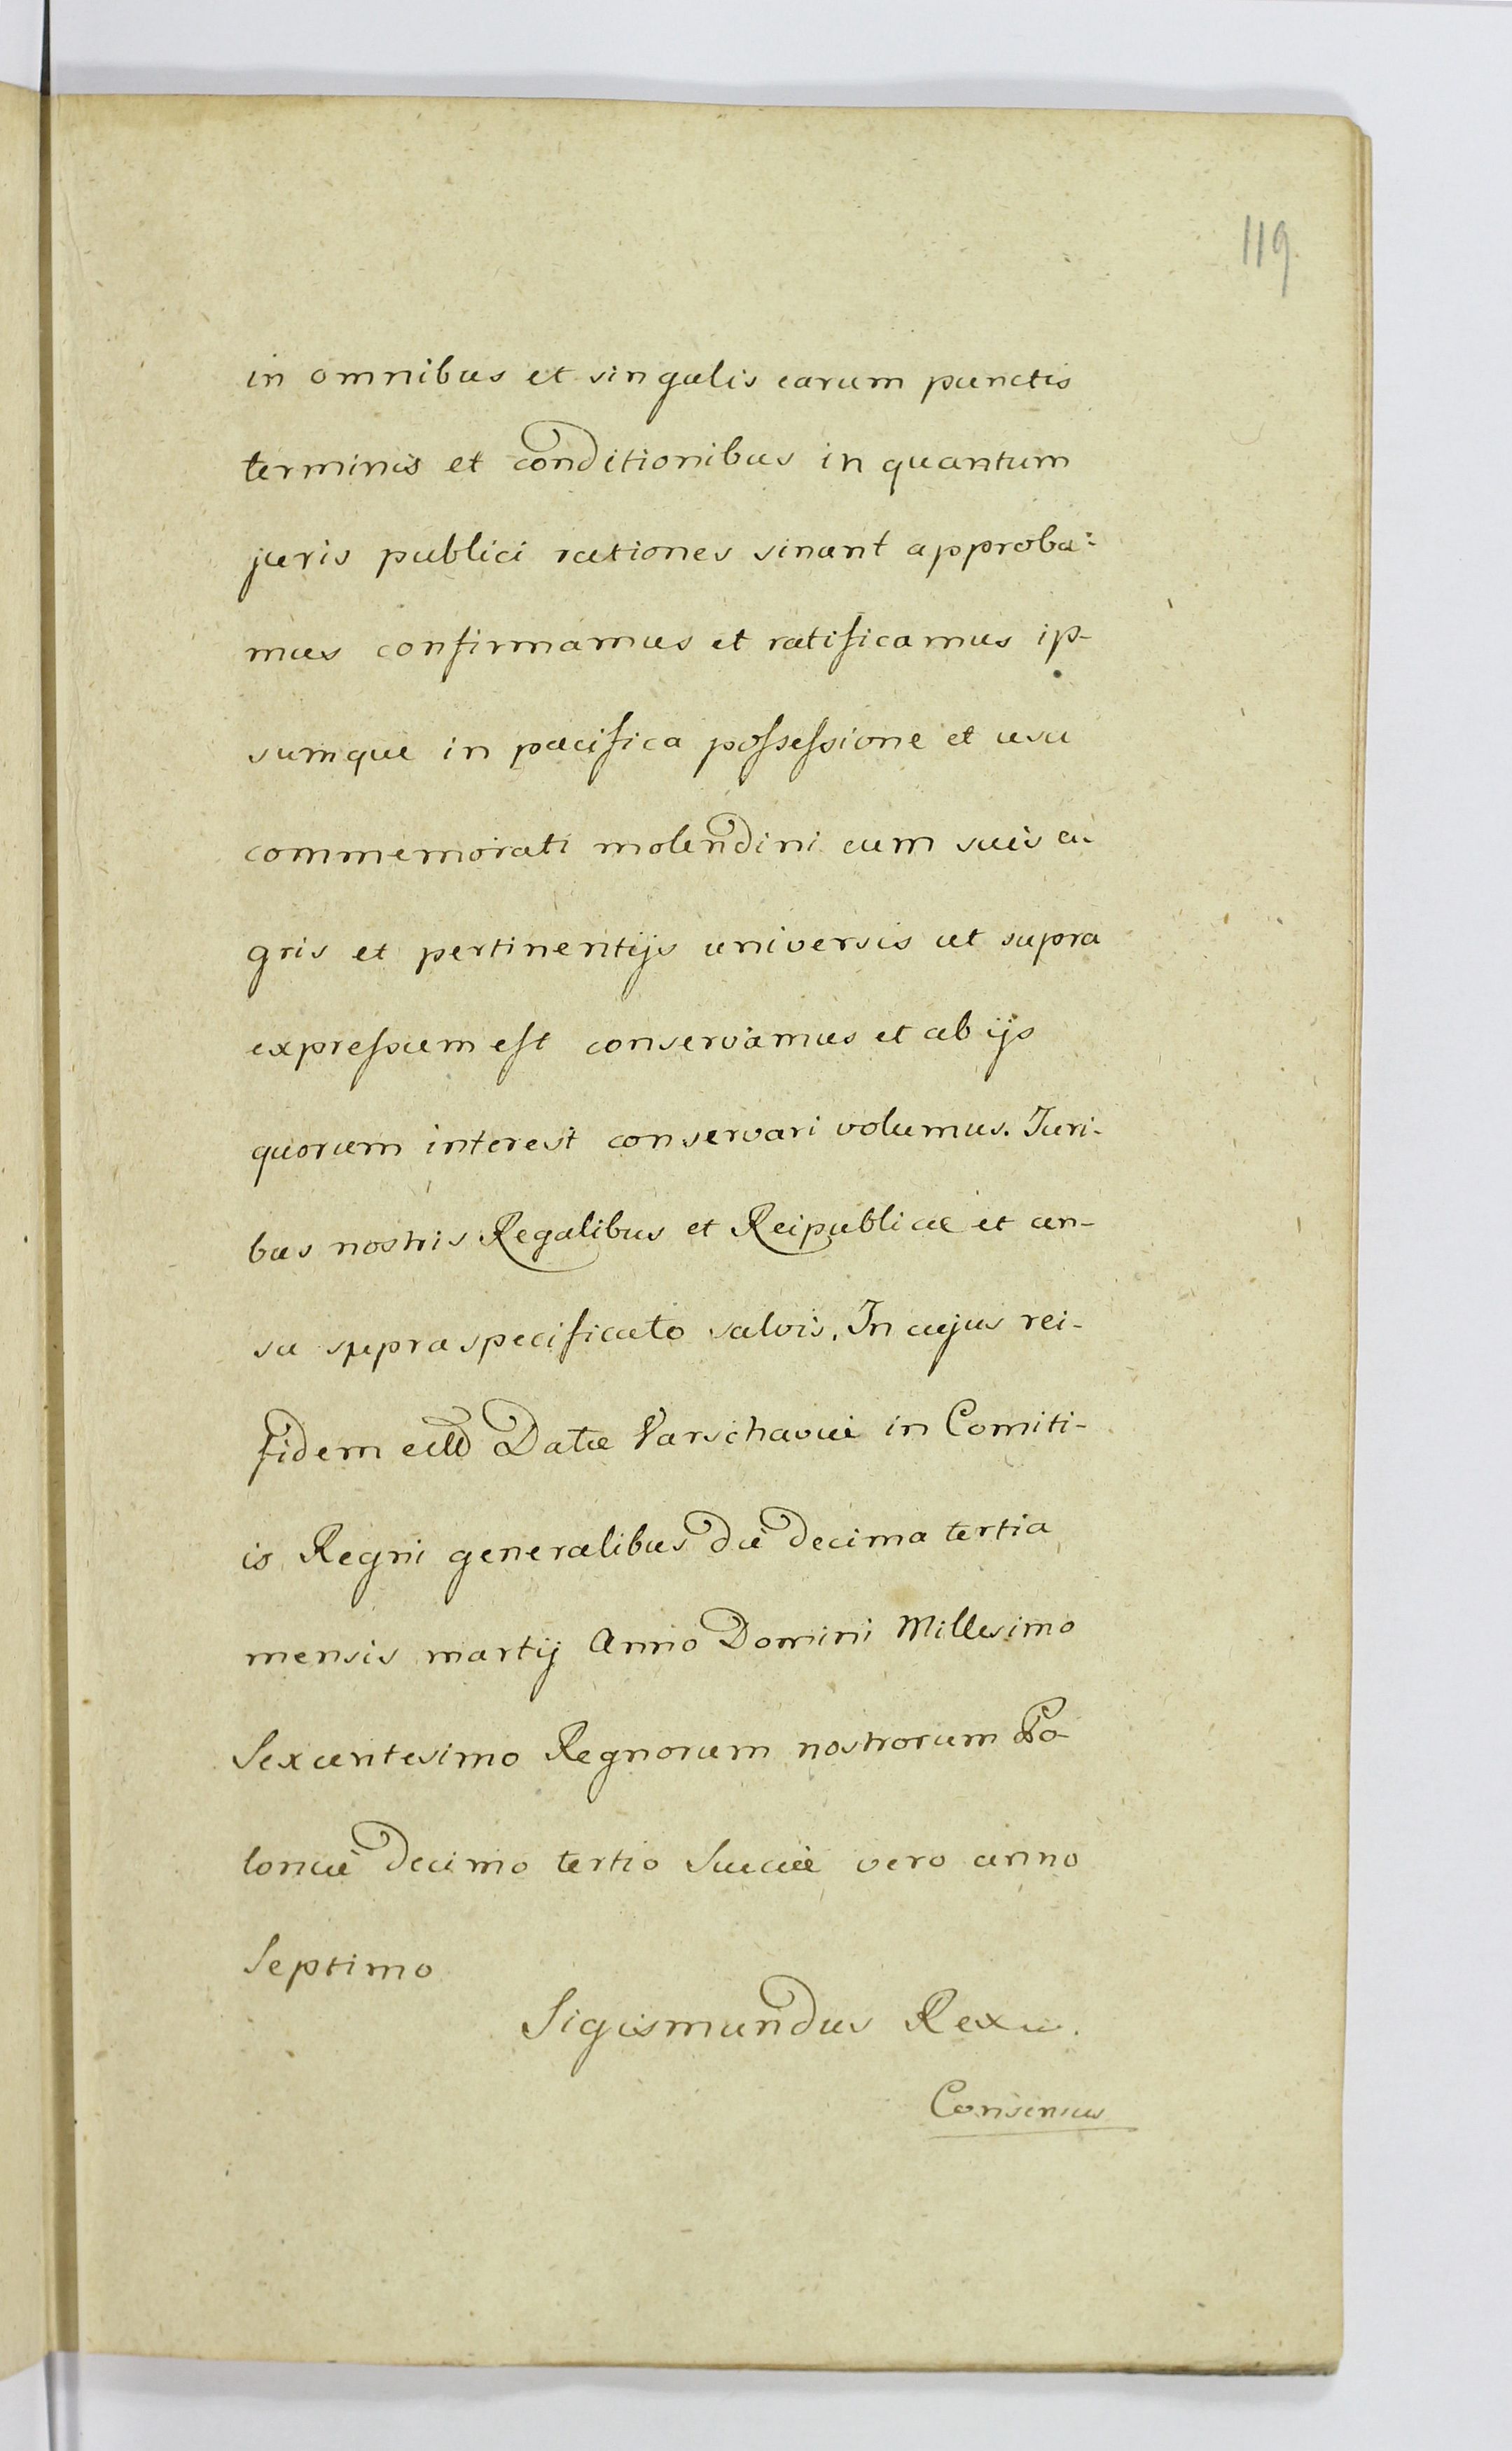 119
in omnibus et singulis earum punctis
terminis et conditionibus in quantum
juris publici rationes sinant approba-
mus confirmamus et ratificamus ip-
sumque in pacifica possessione et usu
commemorati molendini cum suis a-
gris et pertinentijs universis ut supra
expressum est conservamus et ab ijs
quorum interest conservari volumus. Juri-
bus nostris Regalibus et Reipublicæ et cen-
su supra specificato salvis. In cujus rei-
fidem Datæ Varschaviæ in Comiti-
is Regni generalibus die decima tertia
mensis martij Anno Domini Millesimo
Sexcentesimo Regnorum nostrorum Po-
loniæ decimo tertio Sueciæ vero anno
Septimo
Sigismundus Rex
Consensus